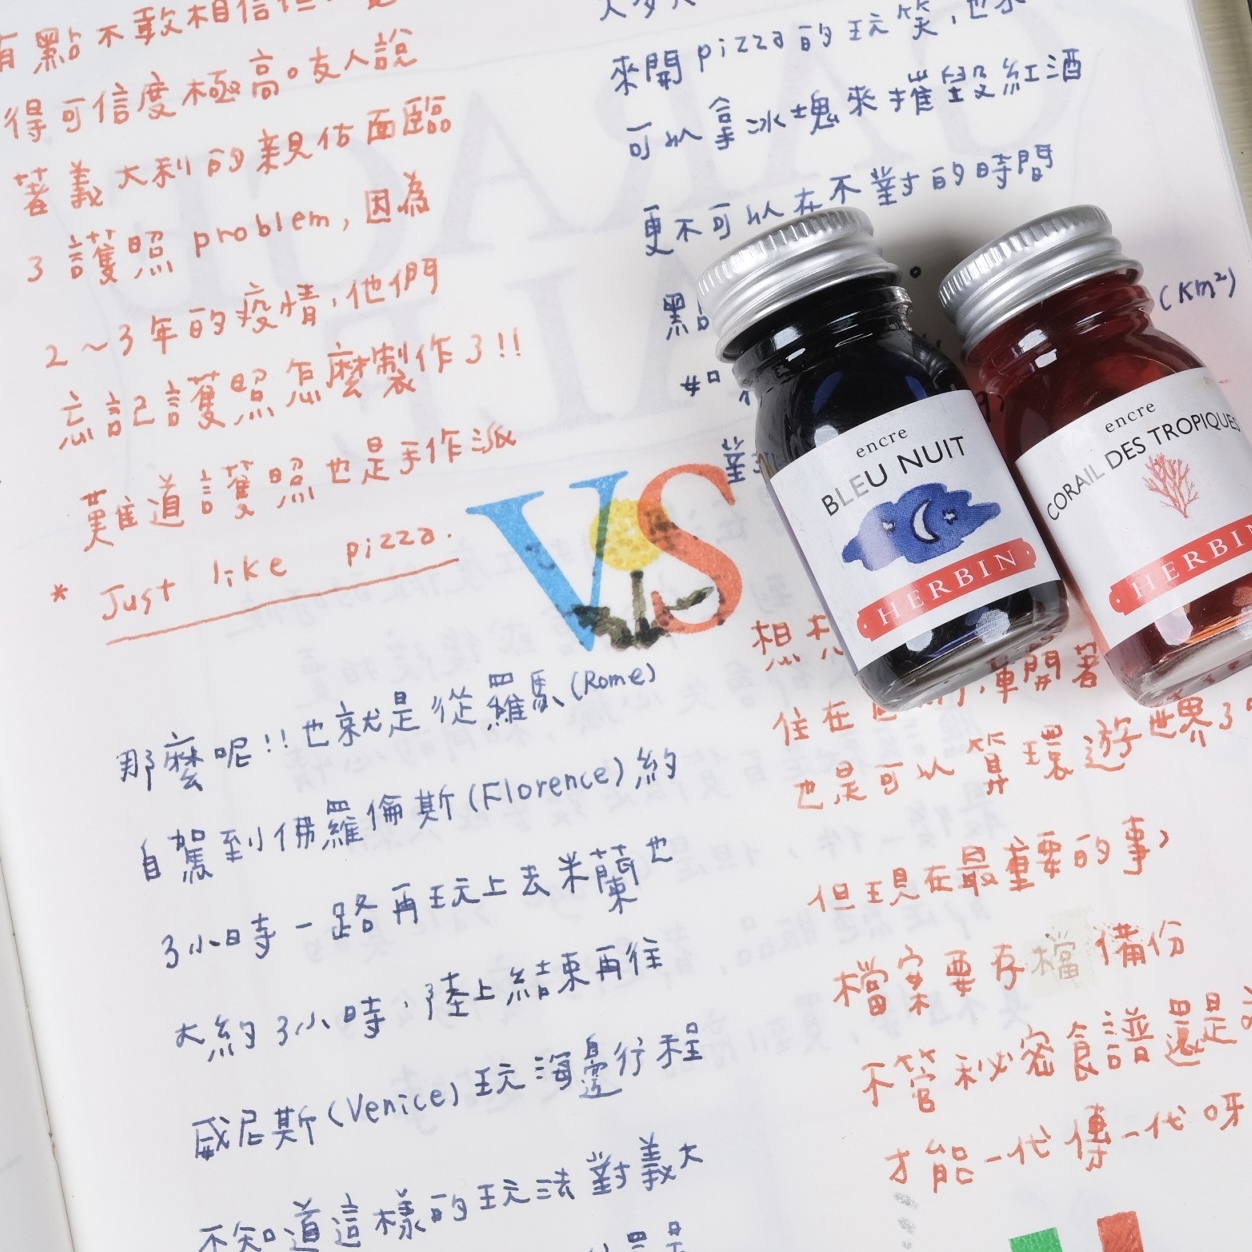 有點不敢相信但
得可信度極高。友人說
著義大利的親估面臨
3 護照 problem, 因為
2～3年的疫情,他們
忘記護照怎麼製作了!!
難道護照也是手作派
* Just like pizza.
VS
那麼呢!!也就是從羅馬(Rome)
自駕到佛羅倫斯(Florence)約
3小時一路再玩上去米蘭也
大約3小時,陸上結束再往
威尼斯(Venice)玩海邊行程
不知道這樣的玩法對義大
來開pizza的玩笑,也不
可以拿冰塊來摧毀紅酒
更不可以在不對的時間
黑
(Km²)
如
對
想想
車開著
住在
也是可以算環遊世界了
但現在最重要的事,
檔案要存檔備份
不管秘密食譜還是
才能一代傳一代呀
encre
BLEU NUIT
HERBIN
encre
CORAIL DES TROPIQUES
HERBIN